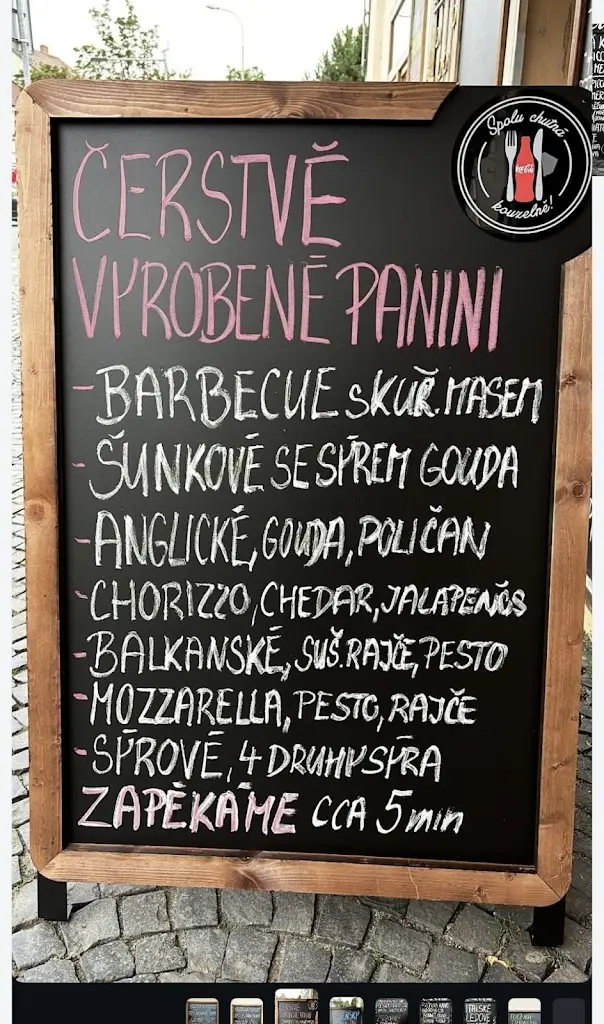 Spolu chutná
Coca-Cola
kouzelně!
ČERSTVĚ
VYROBENÉ PANINI
- BARBECUE s KUŘ. MASEM
- ŠUNKOVÉ SE SÝREM GOUDA
- ANGLICKÉ, GOUDA, POLIČAN
- CHORIZZO, CHEDAR, JALAPENŎS
- BALKANSKÉ, SUŠ. RAJČE, PESTO
- MOZZARELLA, PESTO, RAJČE
- SÝROVÉ, 4 DRUHY SÝRA
ZAPÉKÁME CCA 5 min